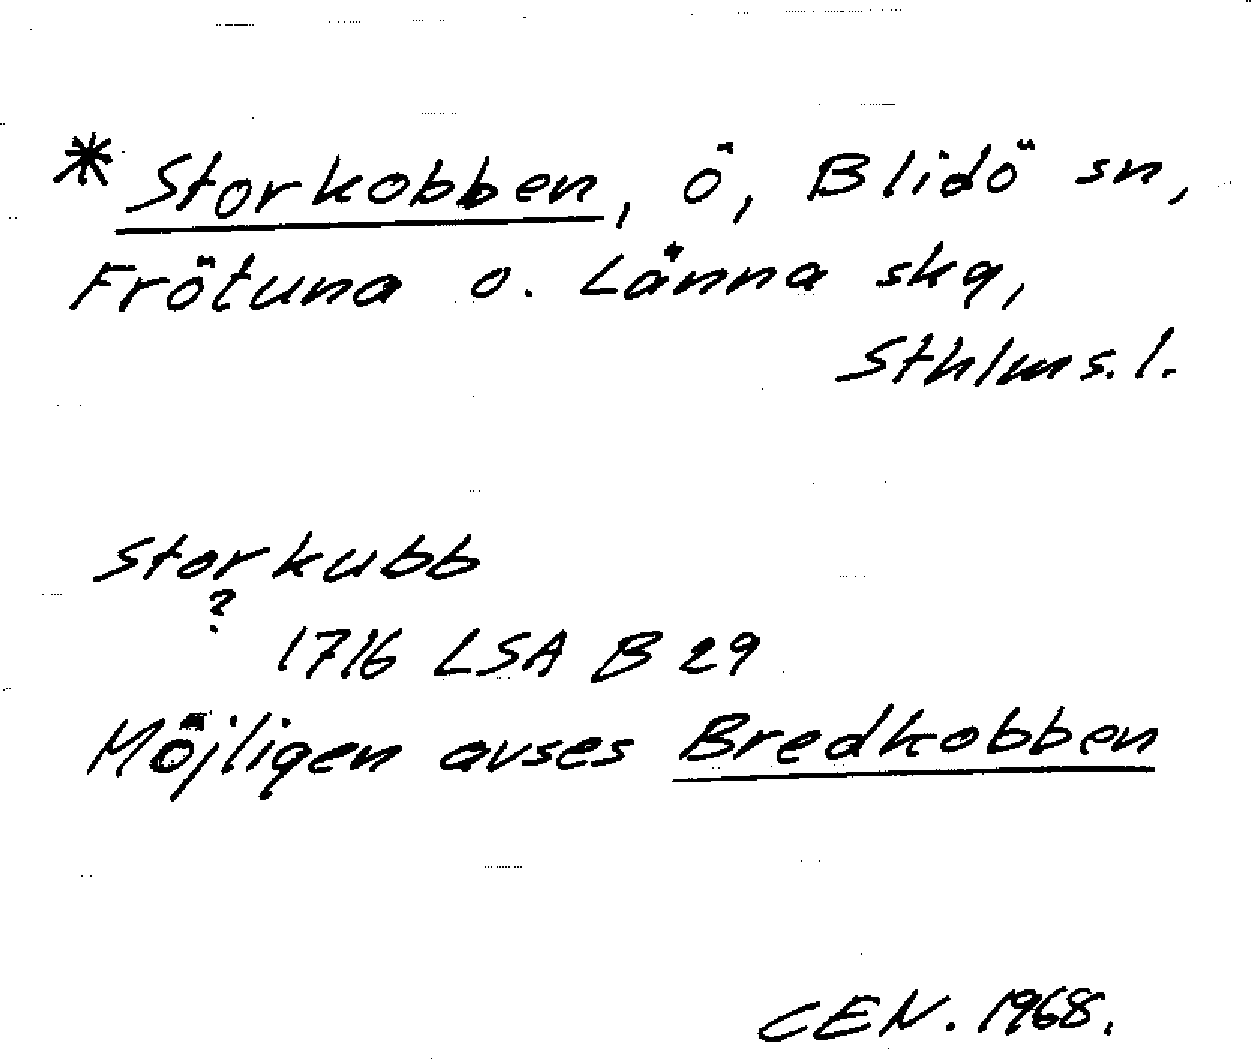 * Storkobben, ö, Blidö sn,
Frötuna o. Länna skg,
Sthlms. l.
Storkubb
?
1716 LSA B 29
Möjligen avses Bredkobben
CEN. 1968.